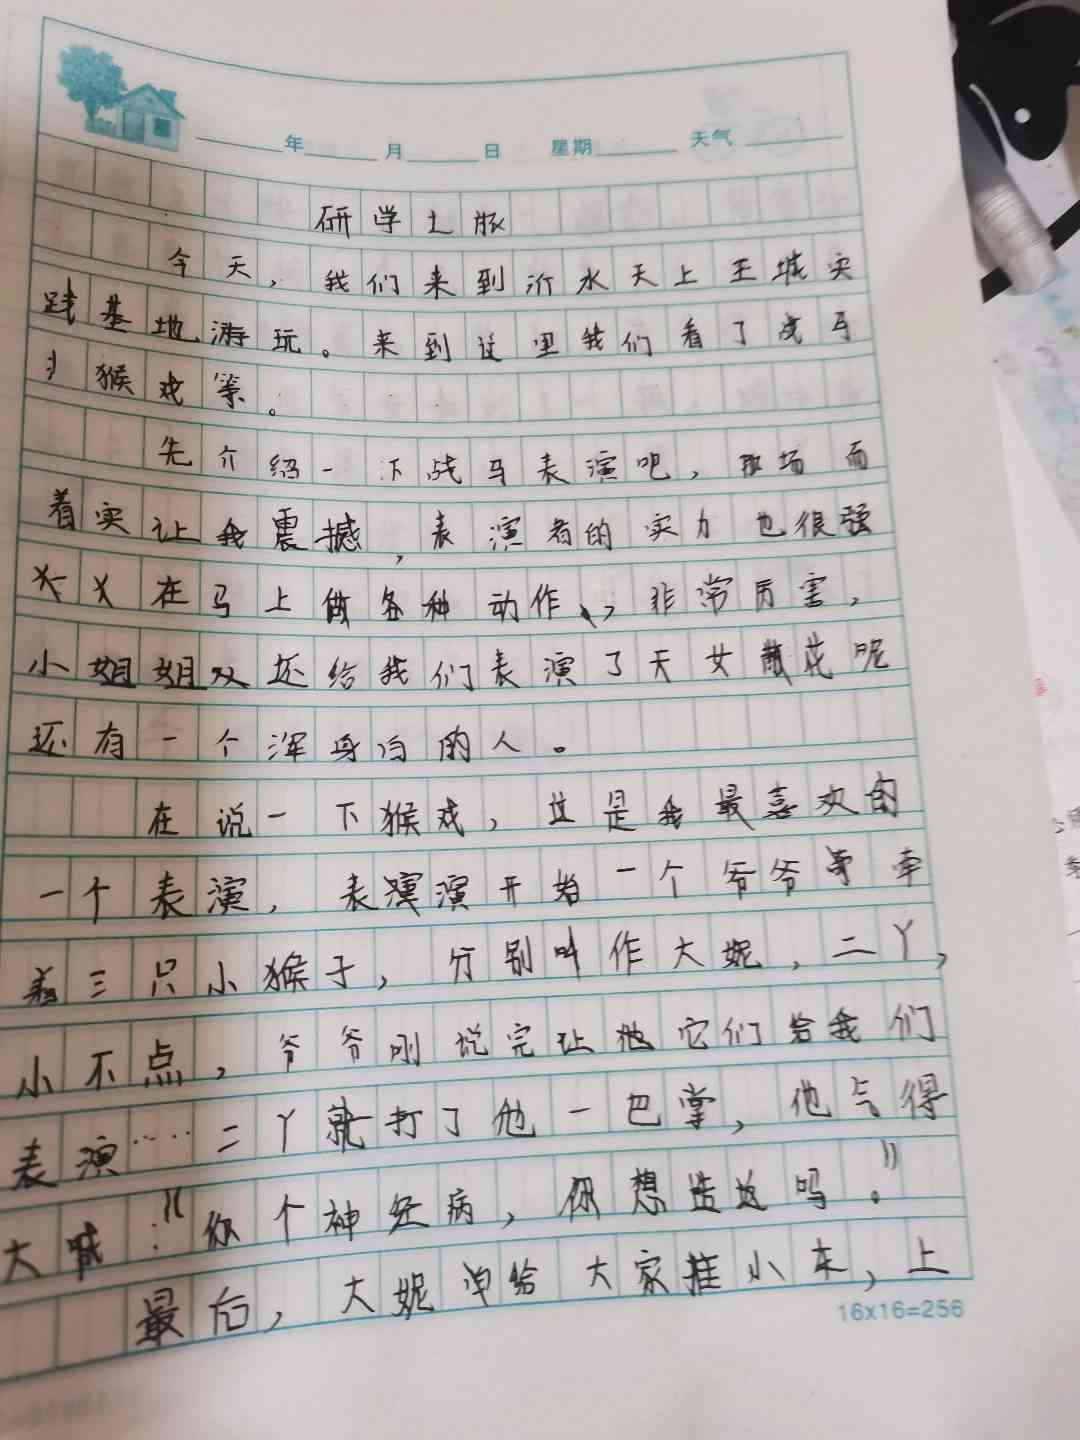 年 月 日 星期 天气
研学之旅
今天,我们来到沂水天上王城实
践基地游玩。来到这里我们看了战马
猴戏等。
先介绍一下战马表演吧,现场而
着实让我震撼,表演者的实力也很强
在马上做各种动作,非常厉害,
小姐姐还给我们表演了天女散花呢
还有一个浑身白的人。
在说一下猴戏,这是我最喜欢的
一个表演,表演开始一个爷爷牵
着三只小猴子,分别叫作大妮,二丫,
小不点,爷爷刚说完让它们给我们
表演……二丫就打了他一巴掌,他气得
大喊:“你个神经病,你想造反吗。”
最后,大妮给大家推小车,上
16x16=256